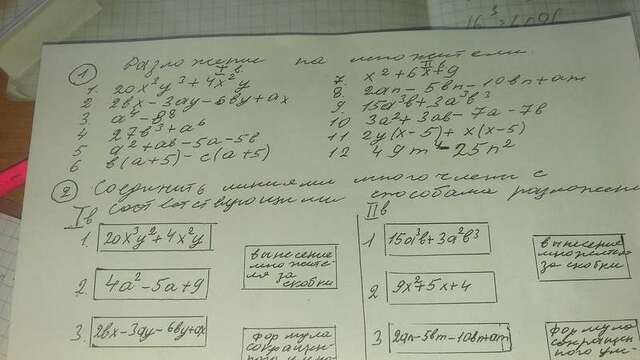 ① Разложение на множители.
I в.
1. 20x³y³ + 4x²y
2 2вx - 3ay - 6вy + ax
3. a⁴ - в⁸
4 27в³ + a⁶
5 a² + aв - 5a - 5в
6 в(a+5) - c(a+5)
II в
7. x² + 6x + 9
8. 2an - 5вm - 10вn + am
9 15a³в + 3a²в³
10 3a² + 3aв - 7a - 7в
11. 2y(x-5) + x(x-5)
12 49m⁴ - 25n²
② Соединить линиями многочлены с
соответствующими способами разложени
I в
1. 20x³y² + 4x²y
2. 4a² - 5a + 9
3. 2вx - 3ay - 6вy + ax
вынесение
множите-
ля за
скобки
формула
сокращен-
ного
II в
1 15a³в + 3a²в³
2 9x² + 5x + 4
3 2an - 5вm - 10вn + am
вынесение
за скобки
формула
сокращен-
ного